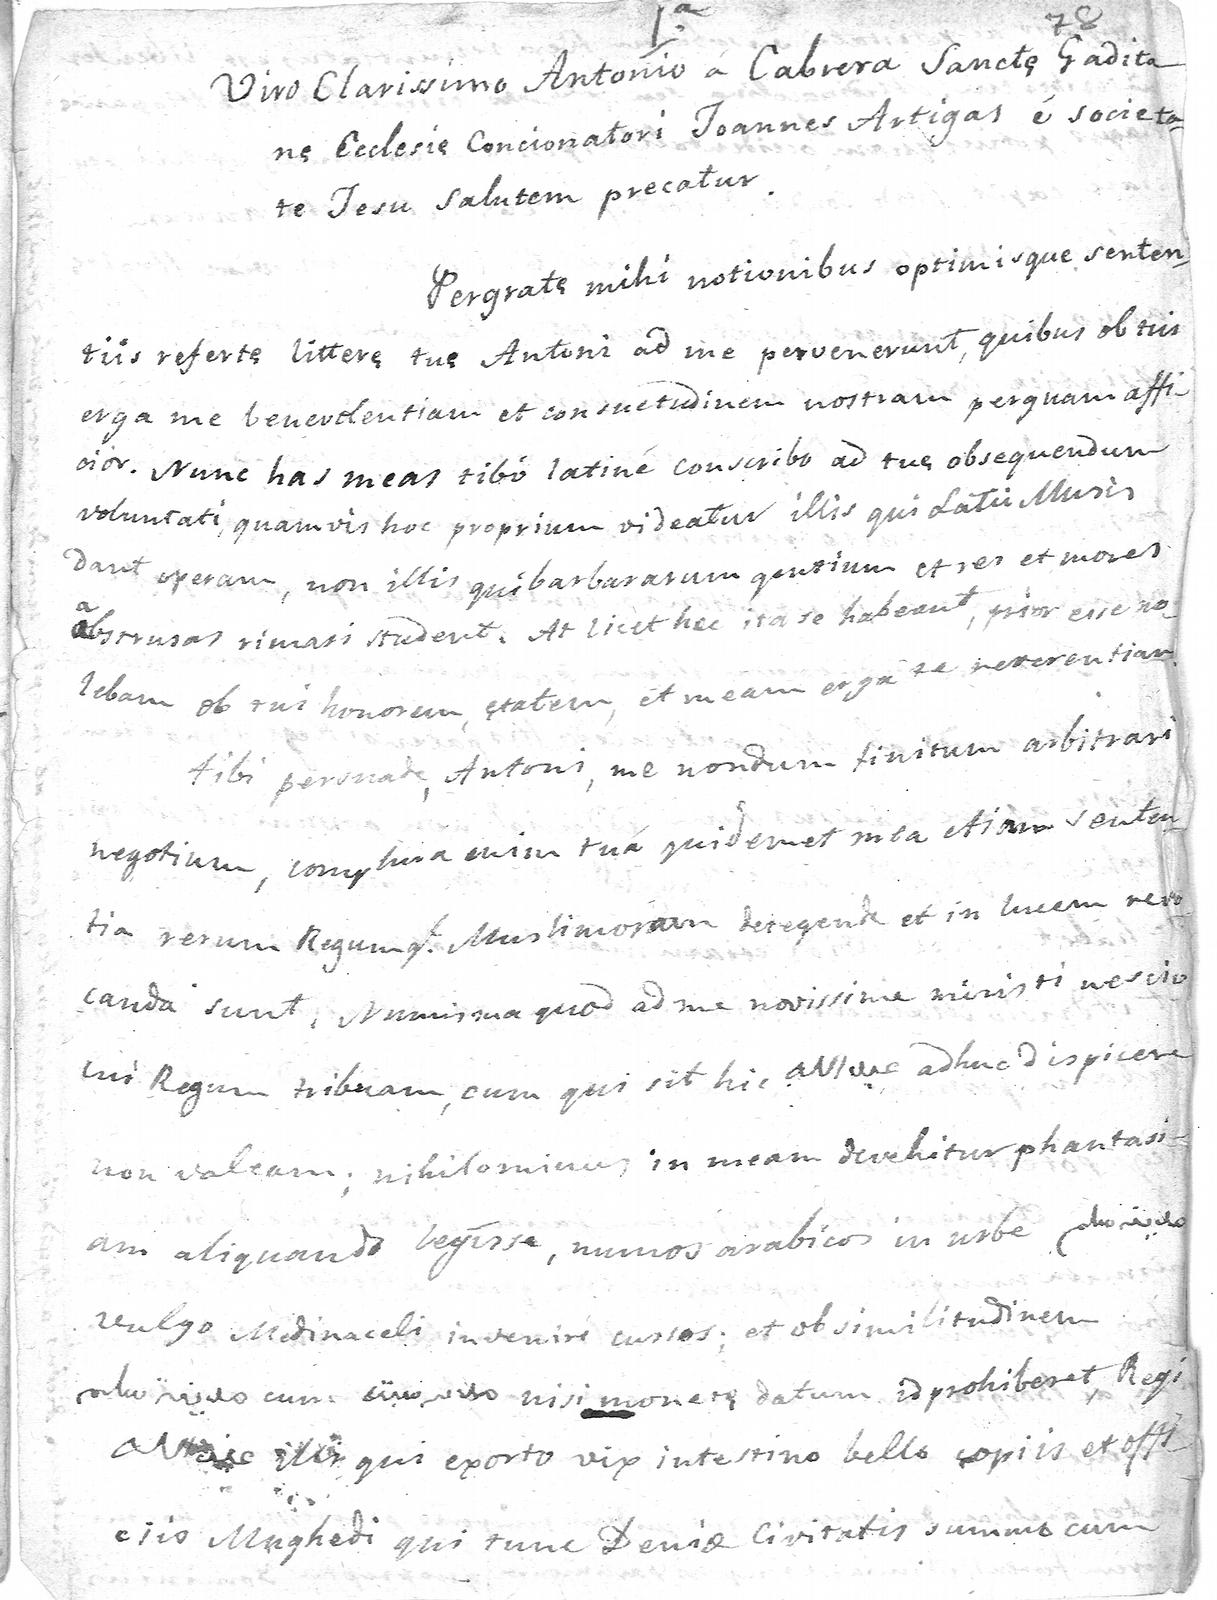 1.ª
78
Viro Clarissimo Antonio á Cabrera Sanctę Gadita
nę Ecclesię Concionatori Joannes Artigas é societa-
te Jesu Salutem precatur.
Pergratę mihi notionibus optimisque senten-
tiis refertę litterę tuę Antoni ad me pervenerunt, quibus ob tui
erga me benevolentiam et consuetudinem nostram perquam affi-
cior. Nunc has meas tibi latiné conscribo ad tuę obsequendum
voluntati, quamvis hoc proprium videatur illis qui Latii Musis
dant operam, non illis qui barbararum gentium et res et mores
abstrusas rimari student. At licet hęc ita se habeant, prior esse no-
lebam ob tui honorem, ętatem, et meam erga te reverentiam.
tibi persuade, Antoni, me nondum finitum arbitrari
negotium, complura enim tuá quidem et mea etiam senten
tia rerum Regumq. Muslimorum detegenda et in lucem revo
canda sunt. Numisma quod ad me novissime misisti nescio
cui Regum tribuam, cum qui sit hic adhuc dispicere
non valeam; nihilominus in meam devehitur phantasi-
am aliquando legisse, numos arabicos in urbe
vulgo Medinaceli invenire cussos; et ob similitudinem
cum nisi monetę datum id prohiberet Regi
qui exorto vix intestino bello copiis et offi-
ciis Mughedi qui tunc Deniæ Civitatis summo cum